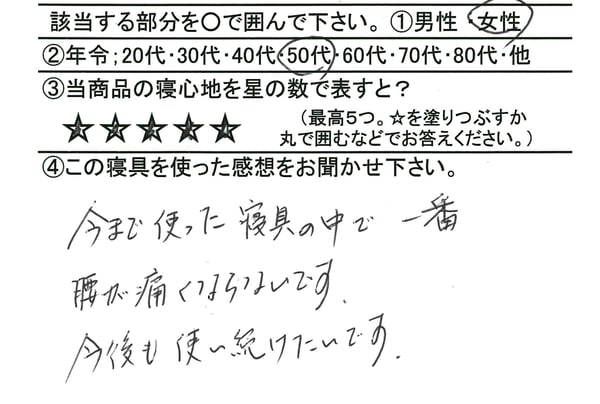 該当する部分を〇で囲んで下さい。①男性・女性
②年令;20代・30代・40代・50代・60代・70代・80代・他
③当商品の寝心地を星の数で表すと？
☆☆☆☆☆
(最高5つ。☆を塗りつぶすか
丸で囲むなどでお答えください。)
④この寝具を使った感想をお聞かせ下さい。
今まで使った寝具の中で一番
腰が痛くならないです.
今後も使い続けたいです.